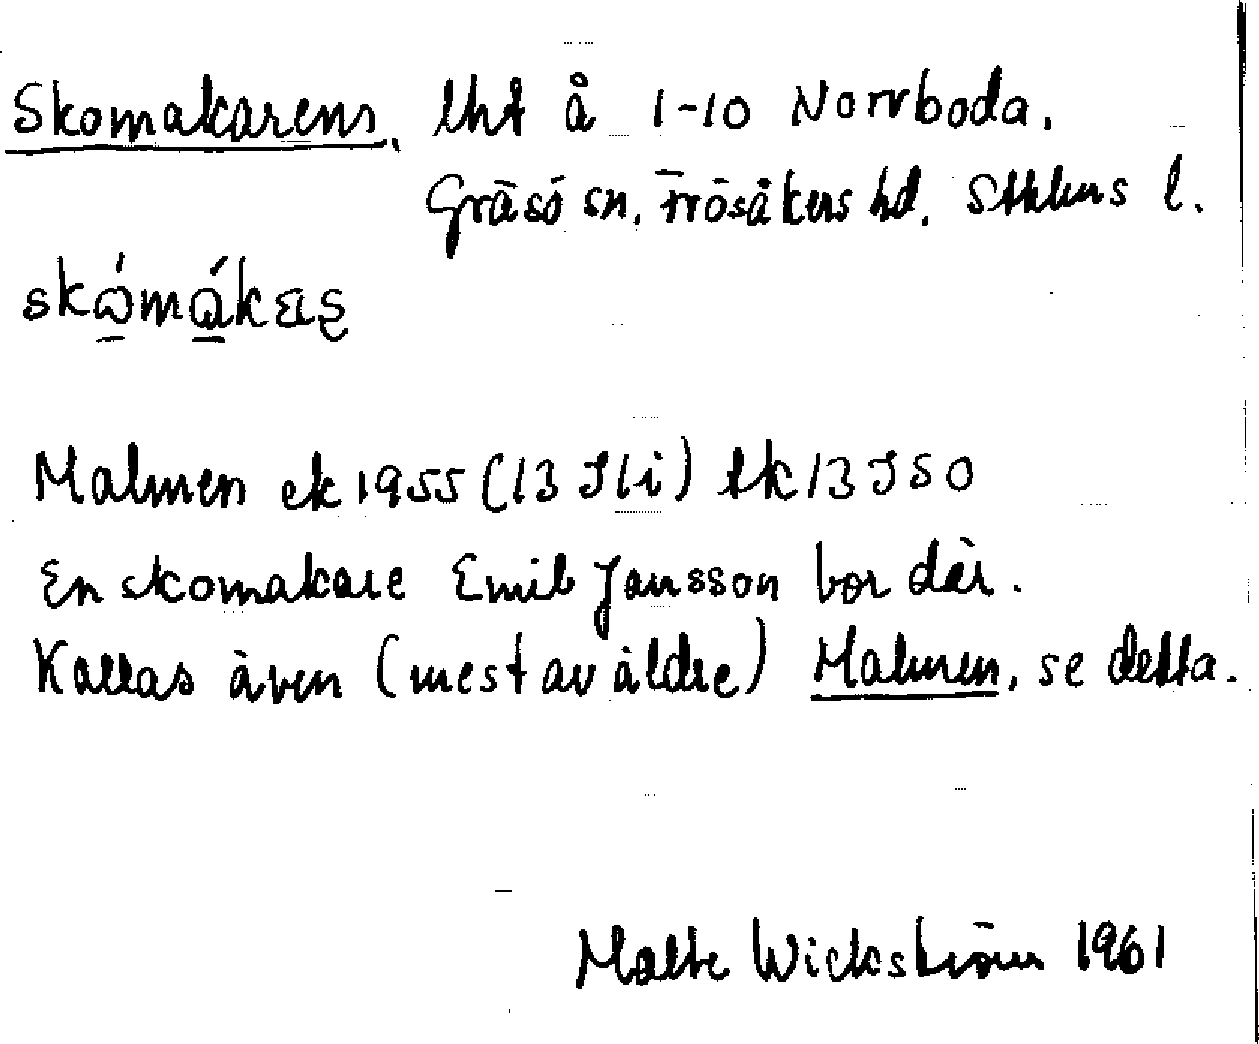 Skomakarens, lht å 1-10 Norrboda.
Gräsö sn, Frösåkers hd. Sthlms l.
Malmen ek 1955 (13 I 6i) tk 13 I S O
En skomakare Emil Jansson bor där.
Kallas även (mest av äldre) Malmen, se detta.
Malte Wickström 1961